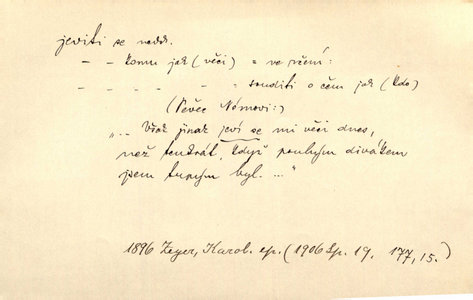 jeviti se nedk.
— — komu jak (věci) = ve rčení:
— — — — — = souditi o čem jak (kdo)
(Pěvec Němovi:)
"... Však jinak jeví se mi věci dnes,
než tenkrát, když pouhým divákem
jsem tupým byl. ..."
1896 Zeyer, Karol. ep. (1906 Sp. 19, 177,15.)